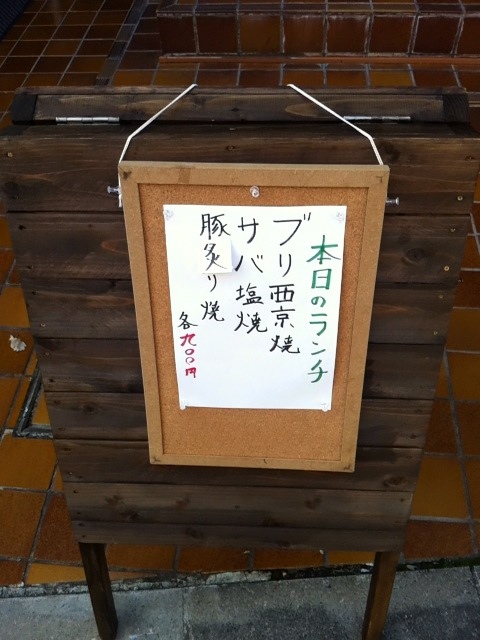 本日のランチ
ブリ西京焼
サバ塩焼
豚炙り焼
各九〇〇円